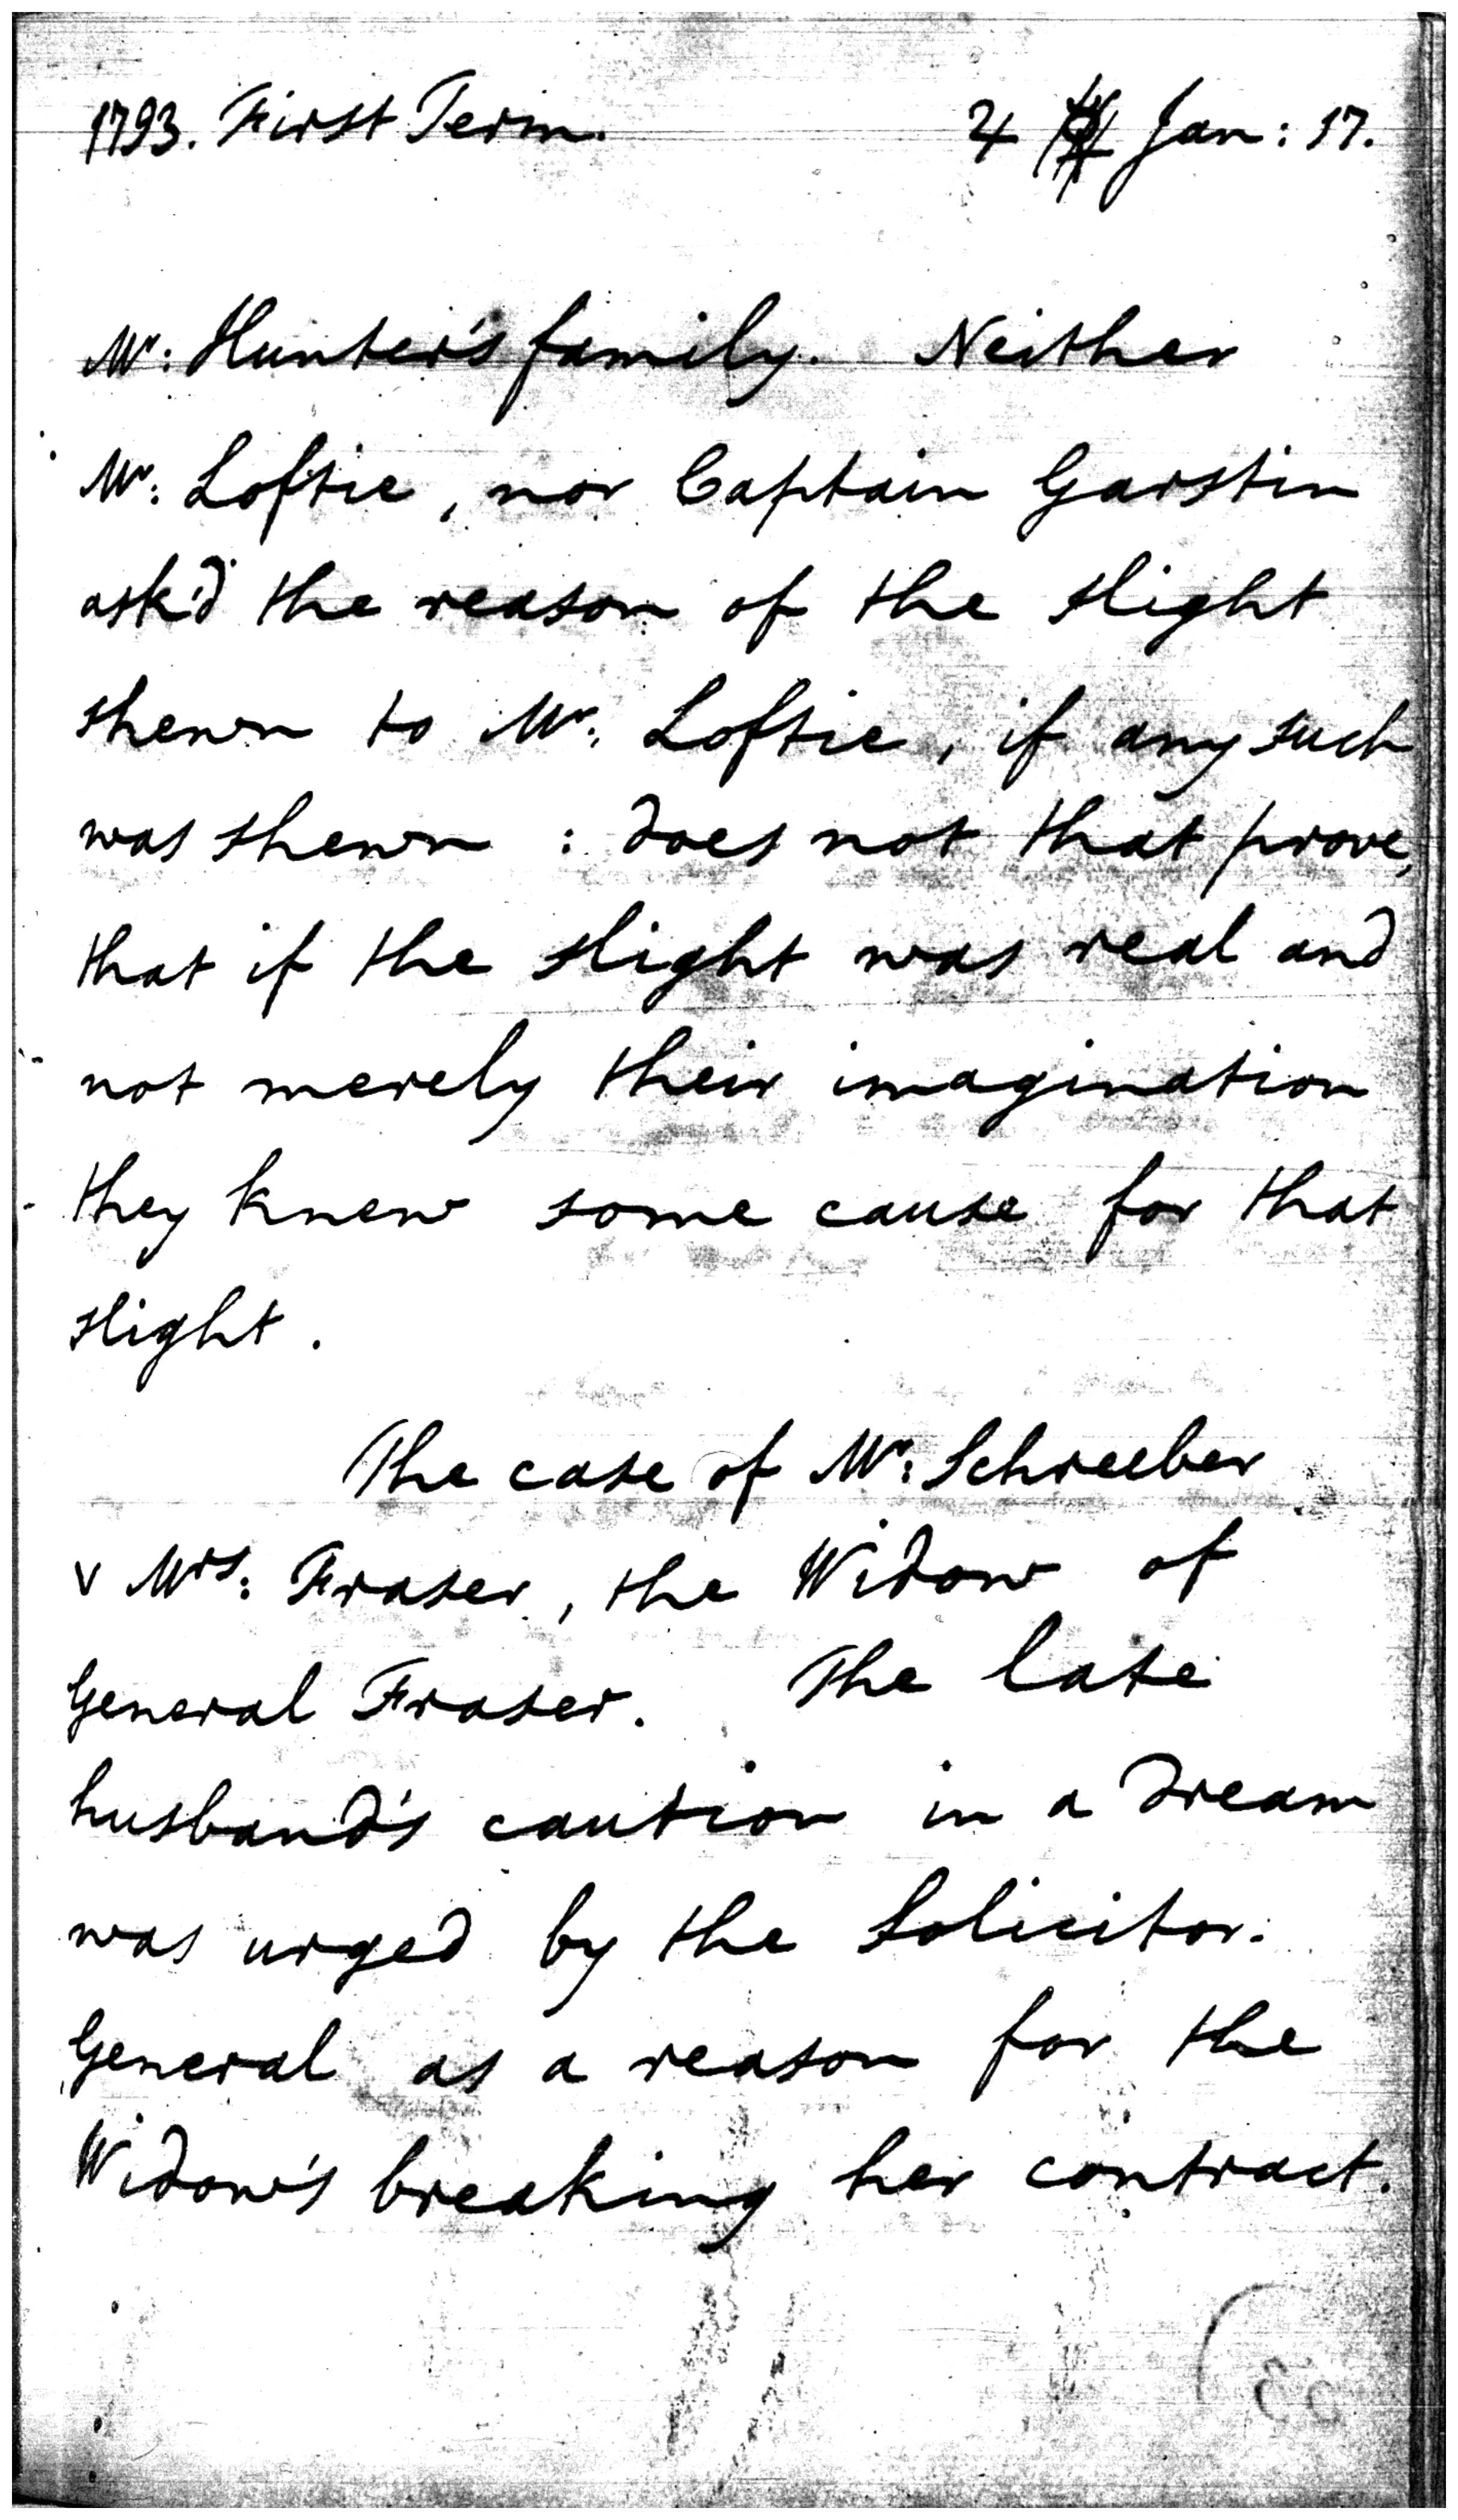 1793. First Term. ♃ Jan: 17.
Mr: Hunter's family. Neither
Mr: Loftie, nor Captain Garstin
ask'd the reason of the slight
shewn to Mr: Loftie, if any such
was shewn : does not that prove,
that if the slight was real and
not merely their imagination
they knew some cause for that
slight.
The case of Mr: Schreeber
v Mrs: Fraser, the Widow of
General Fraser. The late
husband's caution in a dream
was urged by the Solicitor.
General as a reason for the
Widow's breaking her contract.